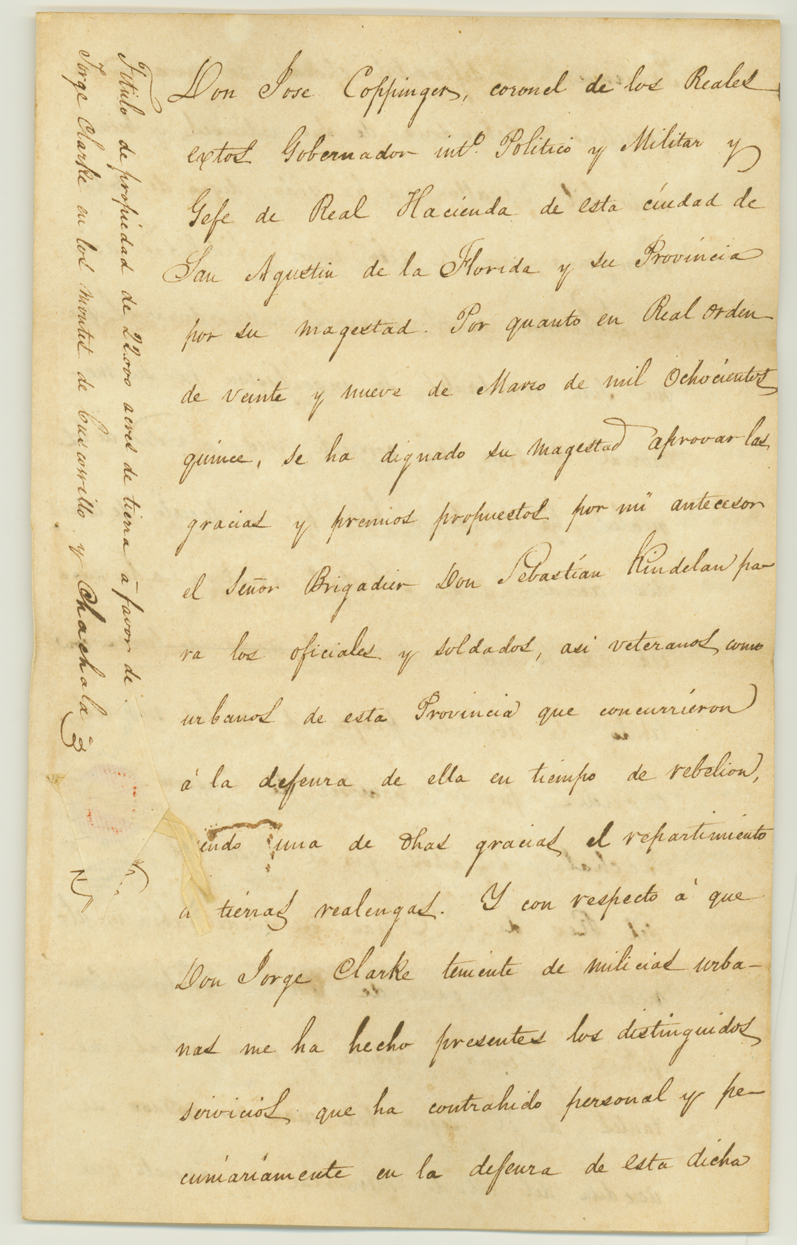 Titulo de propiedad de 22.000 acres de tierra á favor de
Jorge Clarke en los montes de Cuscowillo y Chachala
Don Jose Coppinger, coronel de los Reales
extos Gobernador intº. Politico y Militar y
Gefe de Real Hacienda de esta ciudad de
San Agustin de la Florida y su Provincia
por su magestad. Por quanto en Real orden
de veinte y nueve de Marzo de mil ochocientos
quince, se ha dignado su magestad aprovar las
gracias y premios propuestos por mi antecesor
el Señor Brigadier Don Sebastian Kindelan pa-
ra los oficiales y soldados, asi veteranos como
urbanos de esta Provincia que concurrieron
á la defensa de ella en tiempo de rebelion,
iendo una de dhas gracias el repartimiento
a tierras realengas. Y con respecto á que
Don Jorge Clarke teniente de milicias urba-
nas me ha hecho presentes los distinguidos
servicios que ha contrahido personal y pe-
cuniariamente en la defensa de esta dicha